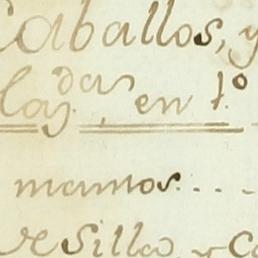 Caballos, y
las das, en 1.º
manos...
de Silla, y Ca